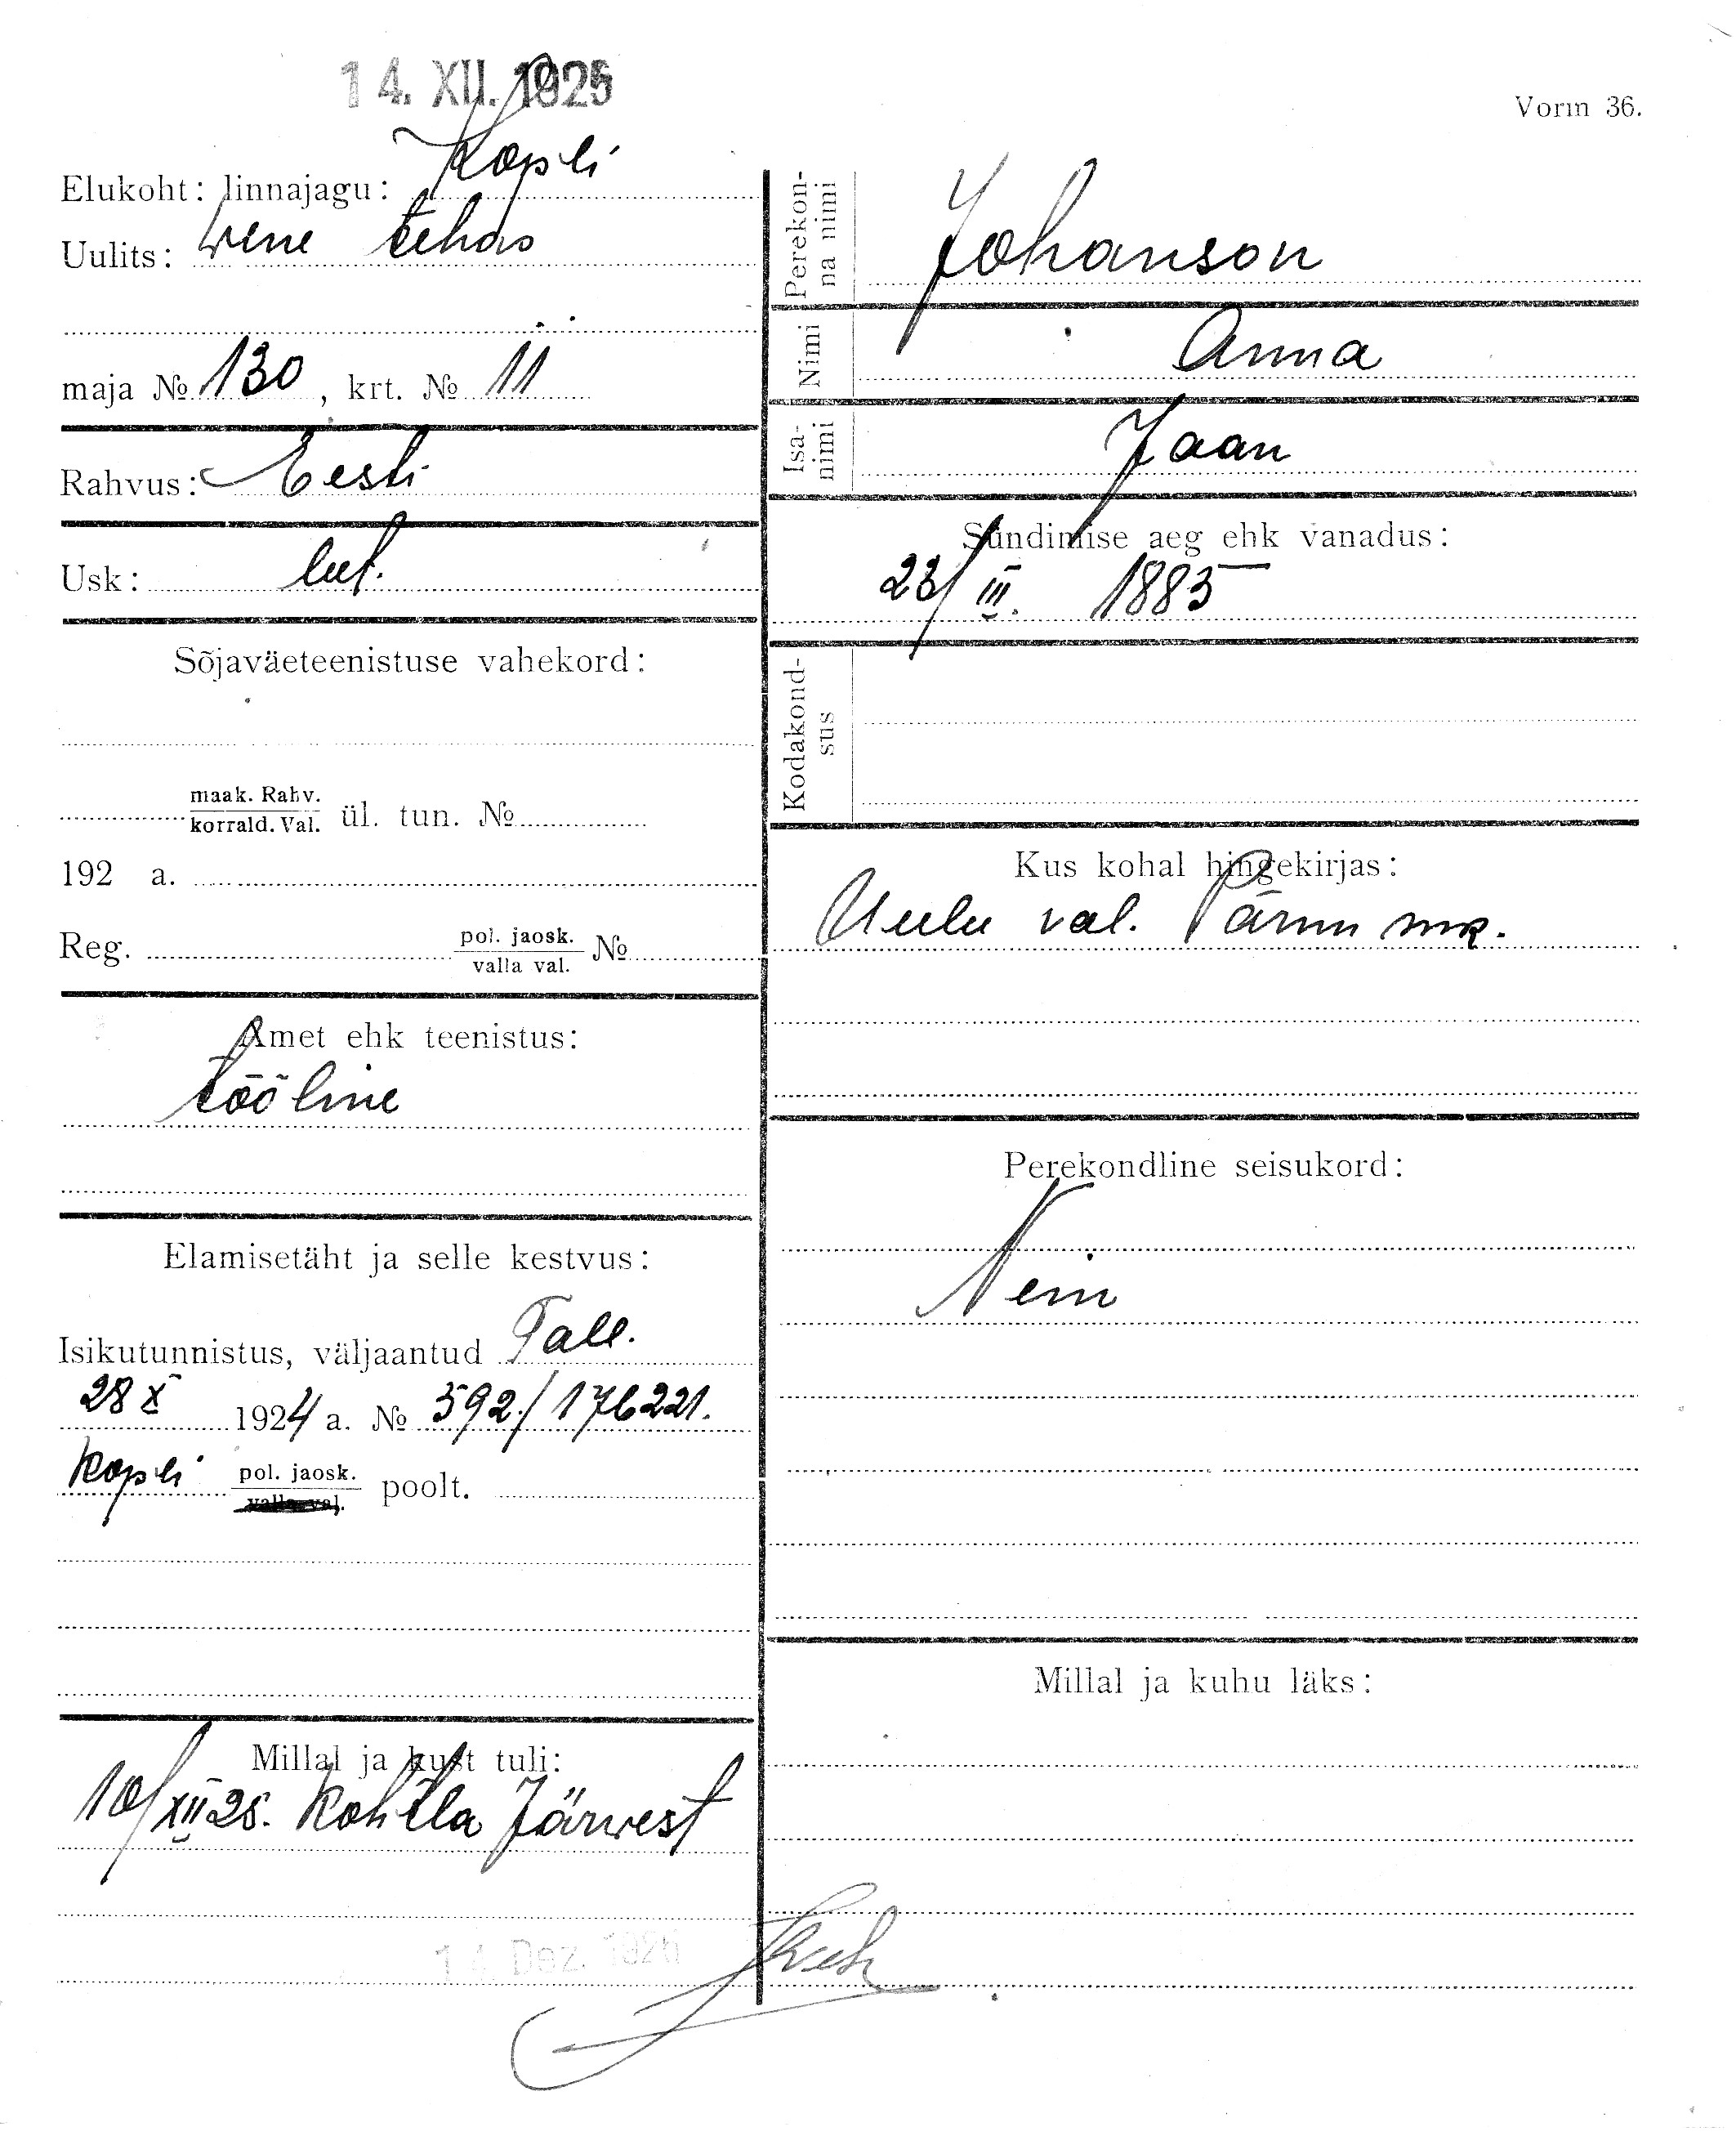 14. XII. 1925
Vorm 36.
Elukoht: linnajagu: Kopli
Uulits: Wene tehas
maja № 130, krt. № 11
Rahvus: Eesti
Usk: lut.
Sõjaväeteenistuse vahekord:
maak. Rahv.
korrald. Val. ül. tun. №
192 a.
Reg. pol. jaosk. №
valla val.
Amet ehk teenistus:
tööline
Elamisetäht ja selle kestvus:
Isikutunnistus, väljaantud Tall.
28 X 1924 a. № 592/176221.
Kopli pol. jaosk. poolt.
valla val.
Millal ja kust tuli:
10/XII 25. Kohtla Järwest
14. Dez. 192
Perekon-
na nimi
Johanson
Nimi Anna
Isa-
nimi
Jaan
Sündimise aeg ehk vanadus:
23/III. 1885
Kodakond-
sus
Kus kohal hingekirjas:
Uulu val. Pärnu mk.
Perekondline seisukord:
Nein
Millal ja kuhu läks: